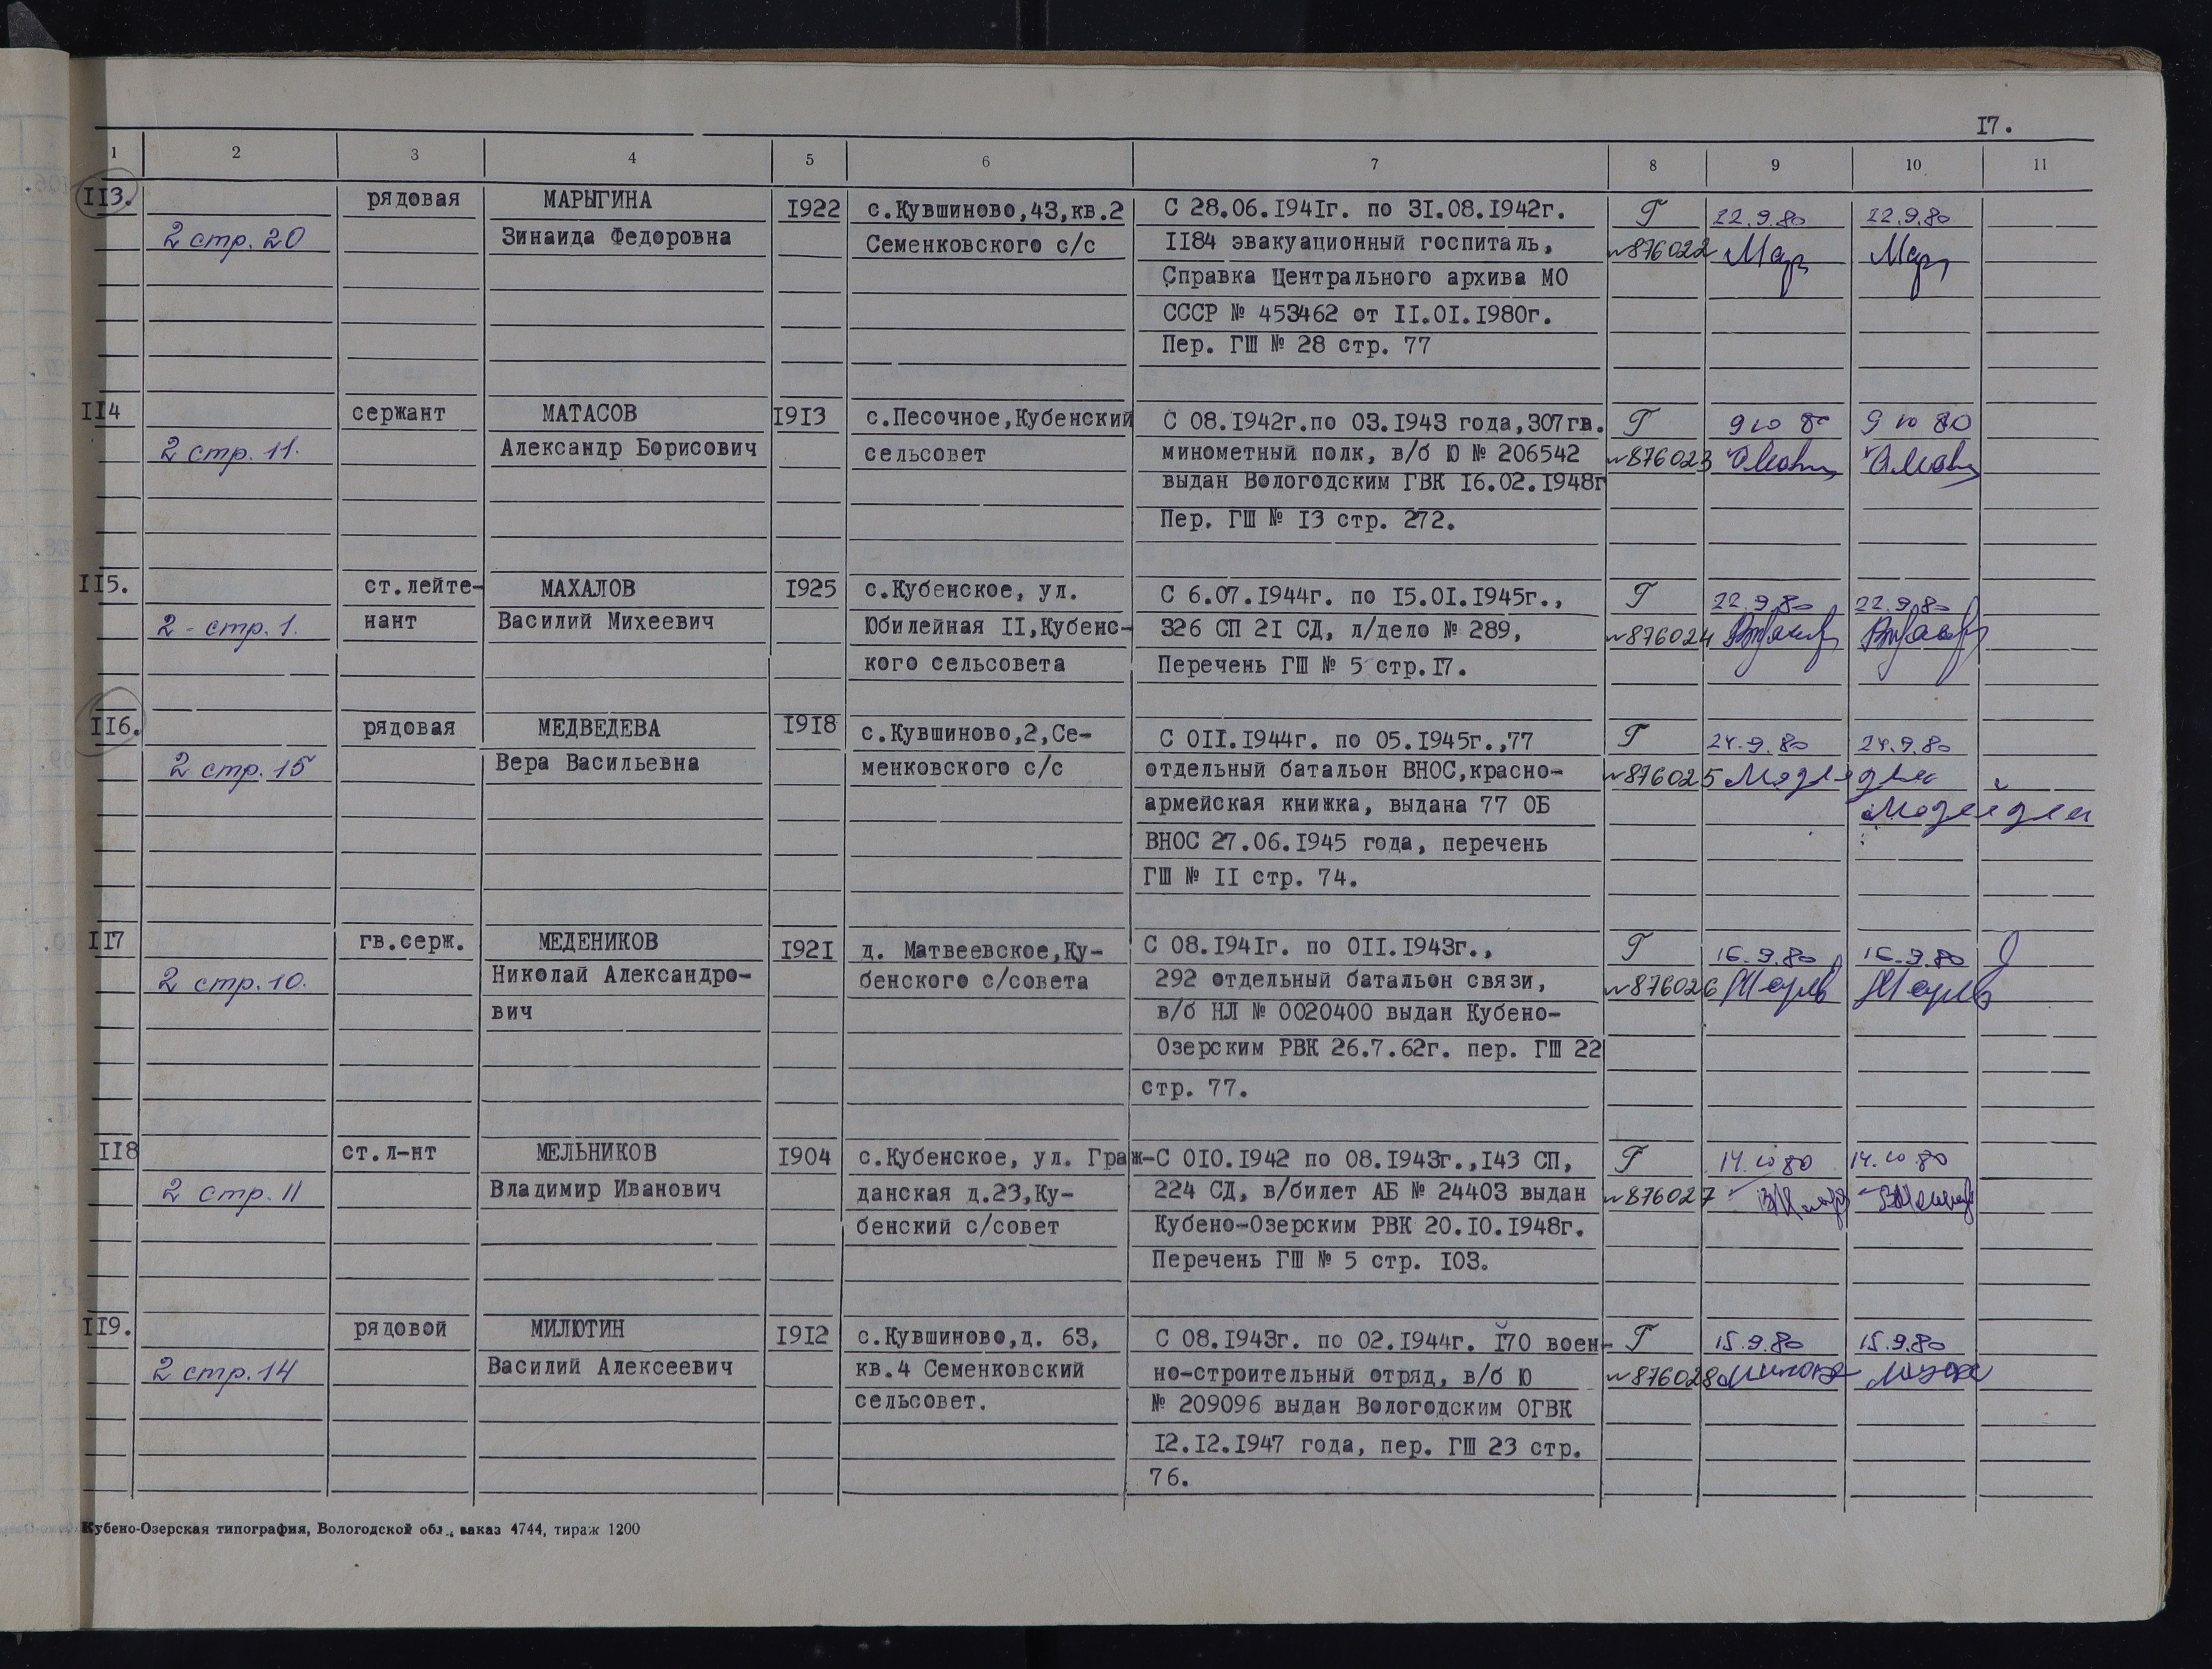 17.
1 2 3 4 5 6 7 8 9 10 11
II3. рядовая МАРЫГИНА I922 с.Кувшиново,43,кв.2 С 28.06.I94Iг. по 3I.08.I942г. Г 22.9.80 22.9.80
2 стр. 20 Зинаида Федоровна Семенковского с/с II84 эвакуационный госпиталь, №876022 Мар Мар
Справка Центрального архива МО
СССР № 453462 от II.0I.I980г.
Пер. ГШ № 28 стр. 77
II4 сержант МАТАСОВ I9I3 с.Песочное,Кубенский С 08.I942г.по 03.I943 года,307гв. Г 9 10 80 9 10 80
2 стр. 11. Александр Борисович сельсовет минометный полк, в/б Ю № 206542 №876023
выдан Вологодским ГВК I6.02.I948г
Пер. ГШ № I3 стр. 272.
II5. ст.лейте- МАХАЛОВ I925 с.Кубенское, ул. С 6.07.I944г. по I5.0I.I945г., Г 22.9.80 22.9.80
2 - стр. 1. нант Василий Михеевич Юбилейная II,Кубенс- 326 СП 2I СД, л/дело № 289, №876024
кого сельсовета Перечень ГШ № 5 стр.I7.
II6. рядовая МЕДВЕДЕВА I9I8 с.Кувшиново,2,Се- С 0II.I944г. по 05.I945г.,77 Г 24.9.80 24.9.80
2 стр. 15 Вера Васильевна менковского с/с отдельный батальон ВНОС,красно- №876025
армейская книжка, выдана 77 ОБ
ВНОС 27.06.I945 года, перечень
ГШ № II стр. 74.
II7 гв.серж. МЕДЕНИКОВ I92I д. Матвеевское,Ку- С 08.I94Iг. по 0II.I943г., Г 16.9.80 16.9.80
2 стр. 10. Николай Александро- бенского с/совета 292 отдельный батальон связи, №876026
вич в/б НЛ № 0020400 выдан Кубено-
Озерским РВК 26.7.62г. пер. ГШ 22
стр. 77.
II8 ст.л-нт МЕЛЬНИКОВ I904 с.Кубенское, ул. Граж- С 0I0.I942 по 08.I943г.,I43 СП, Г 14.10 80 14.10 80
2 стр. 11 Владимир Иванович данская д.23,Ку- 224 СД, в/билет АБ № 24403 выдан №876027
бенский с/совет Кубено-Озерским РВК 20.I0.I948г.
Перечень ГШ № 5 стр. I03.
II9. рядовой МИЛЮТИН I9I2 с.Кувшиново,д. 63, С 08.I943г. по 02.I944г. I70 воен- Г 15.9.80 15.9.80
2 стр. 14 Василий Алексеевич кв.4 Семенковский но-строительный отряд, в/б Ю №876028
сельсовет. № 209096 выдан Вологодским ОГВК
I2.I2.I947 года, пер. ГШ 23 стр.
76.
Кубено-Озерская типография, Вологодской обл., заказ 4744, тираж 1200